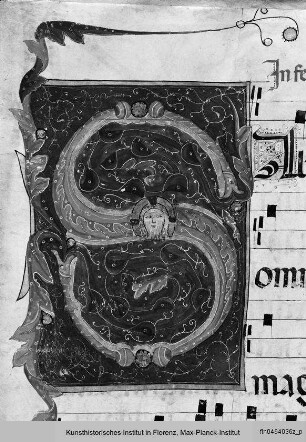 In fe
S
omn
mag
Kunsthistorisches Institut in Florenz, Max-Planck-Institut
fln0464036z_p